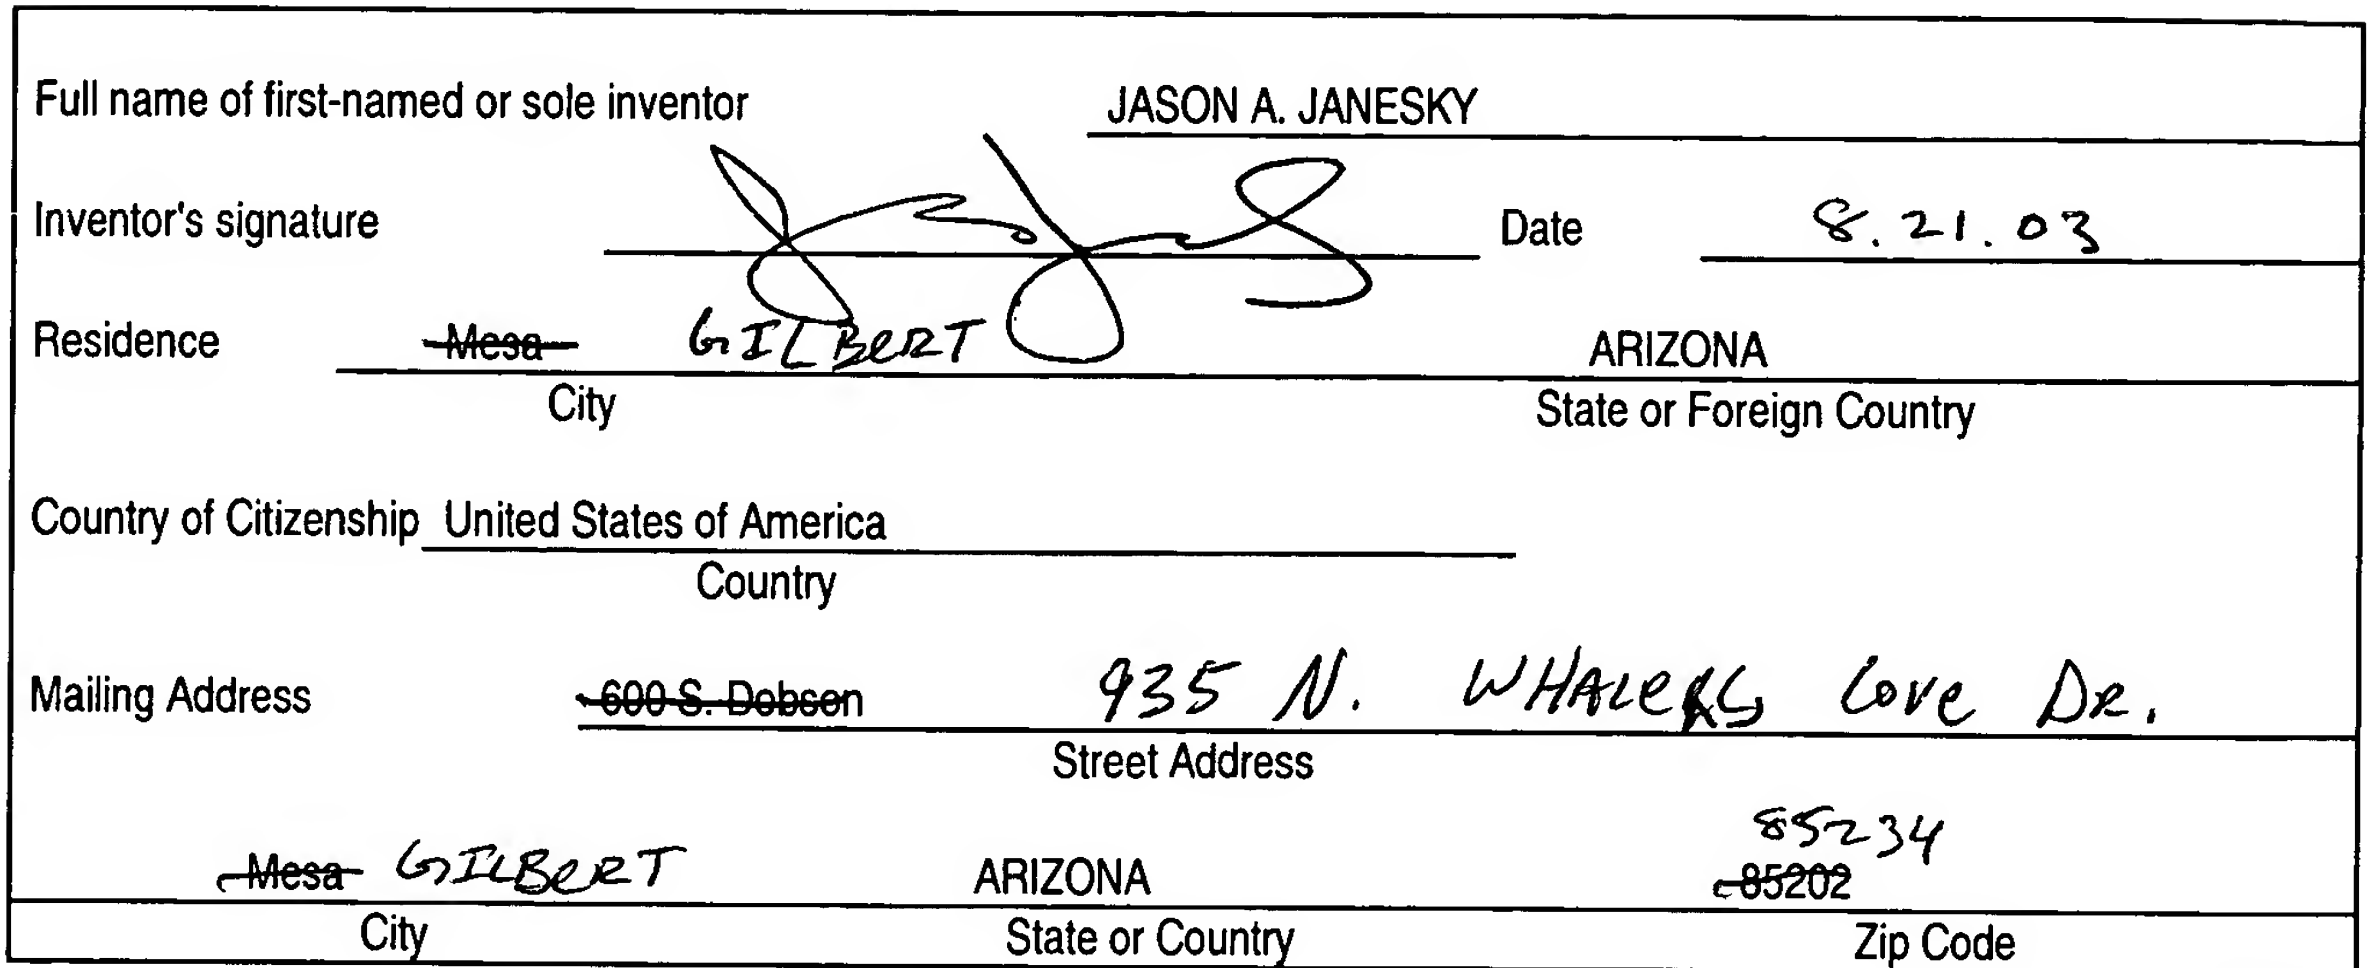 Full name of first-named or sole inventor JASON A. JANESKY
Inventor's signature Date 8.21.03
Residence Mesa GILBERT ARIZONA
City State or Foreign Country
Country of Citizenship United States of America
Country
Mailing Address 600 S. Dobson 935 N. WHALERS Cove DR.
Street Address
85234
Mesa GILBERT ARIZONA 85202
City State or Country Zip Code